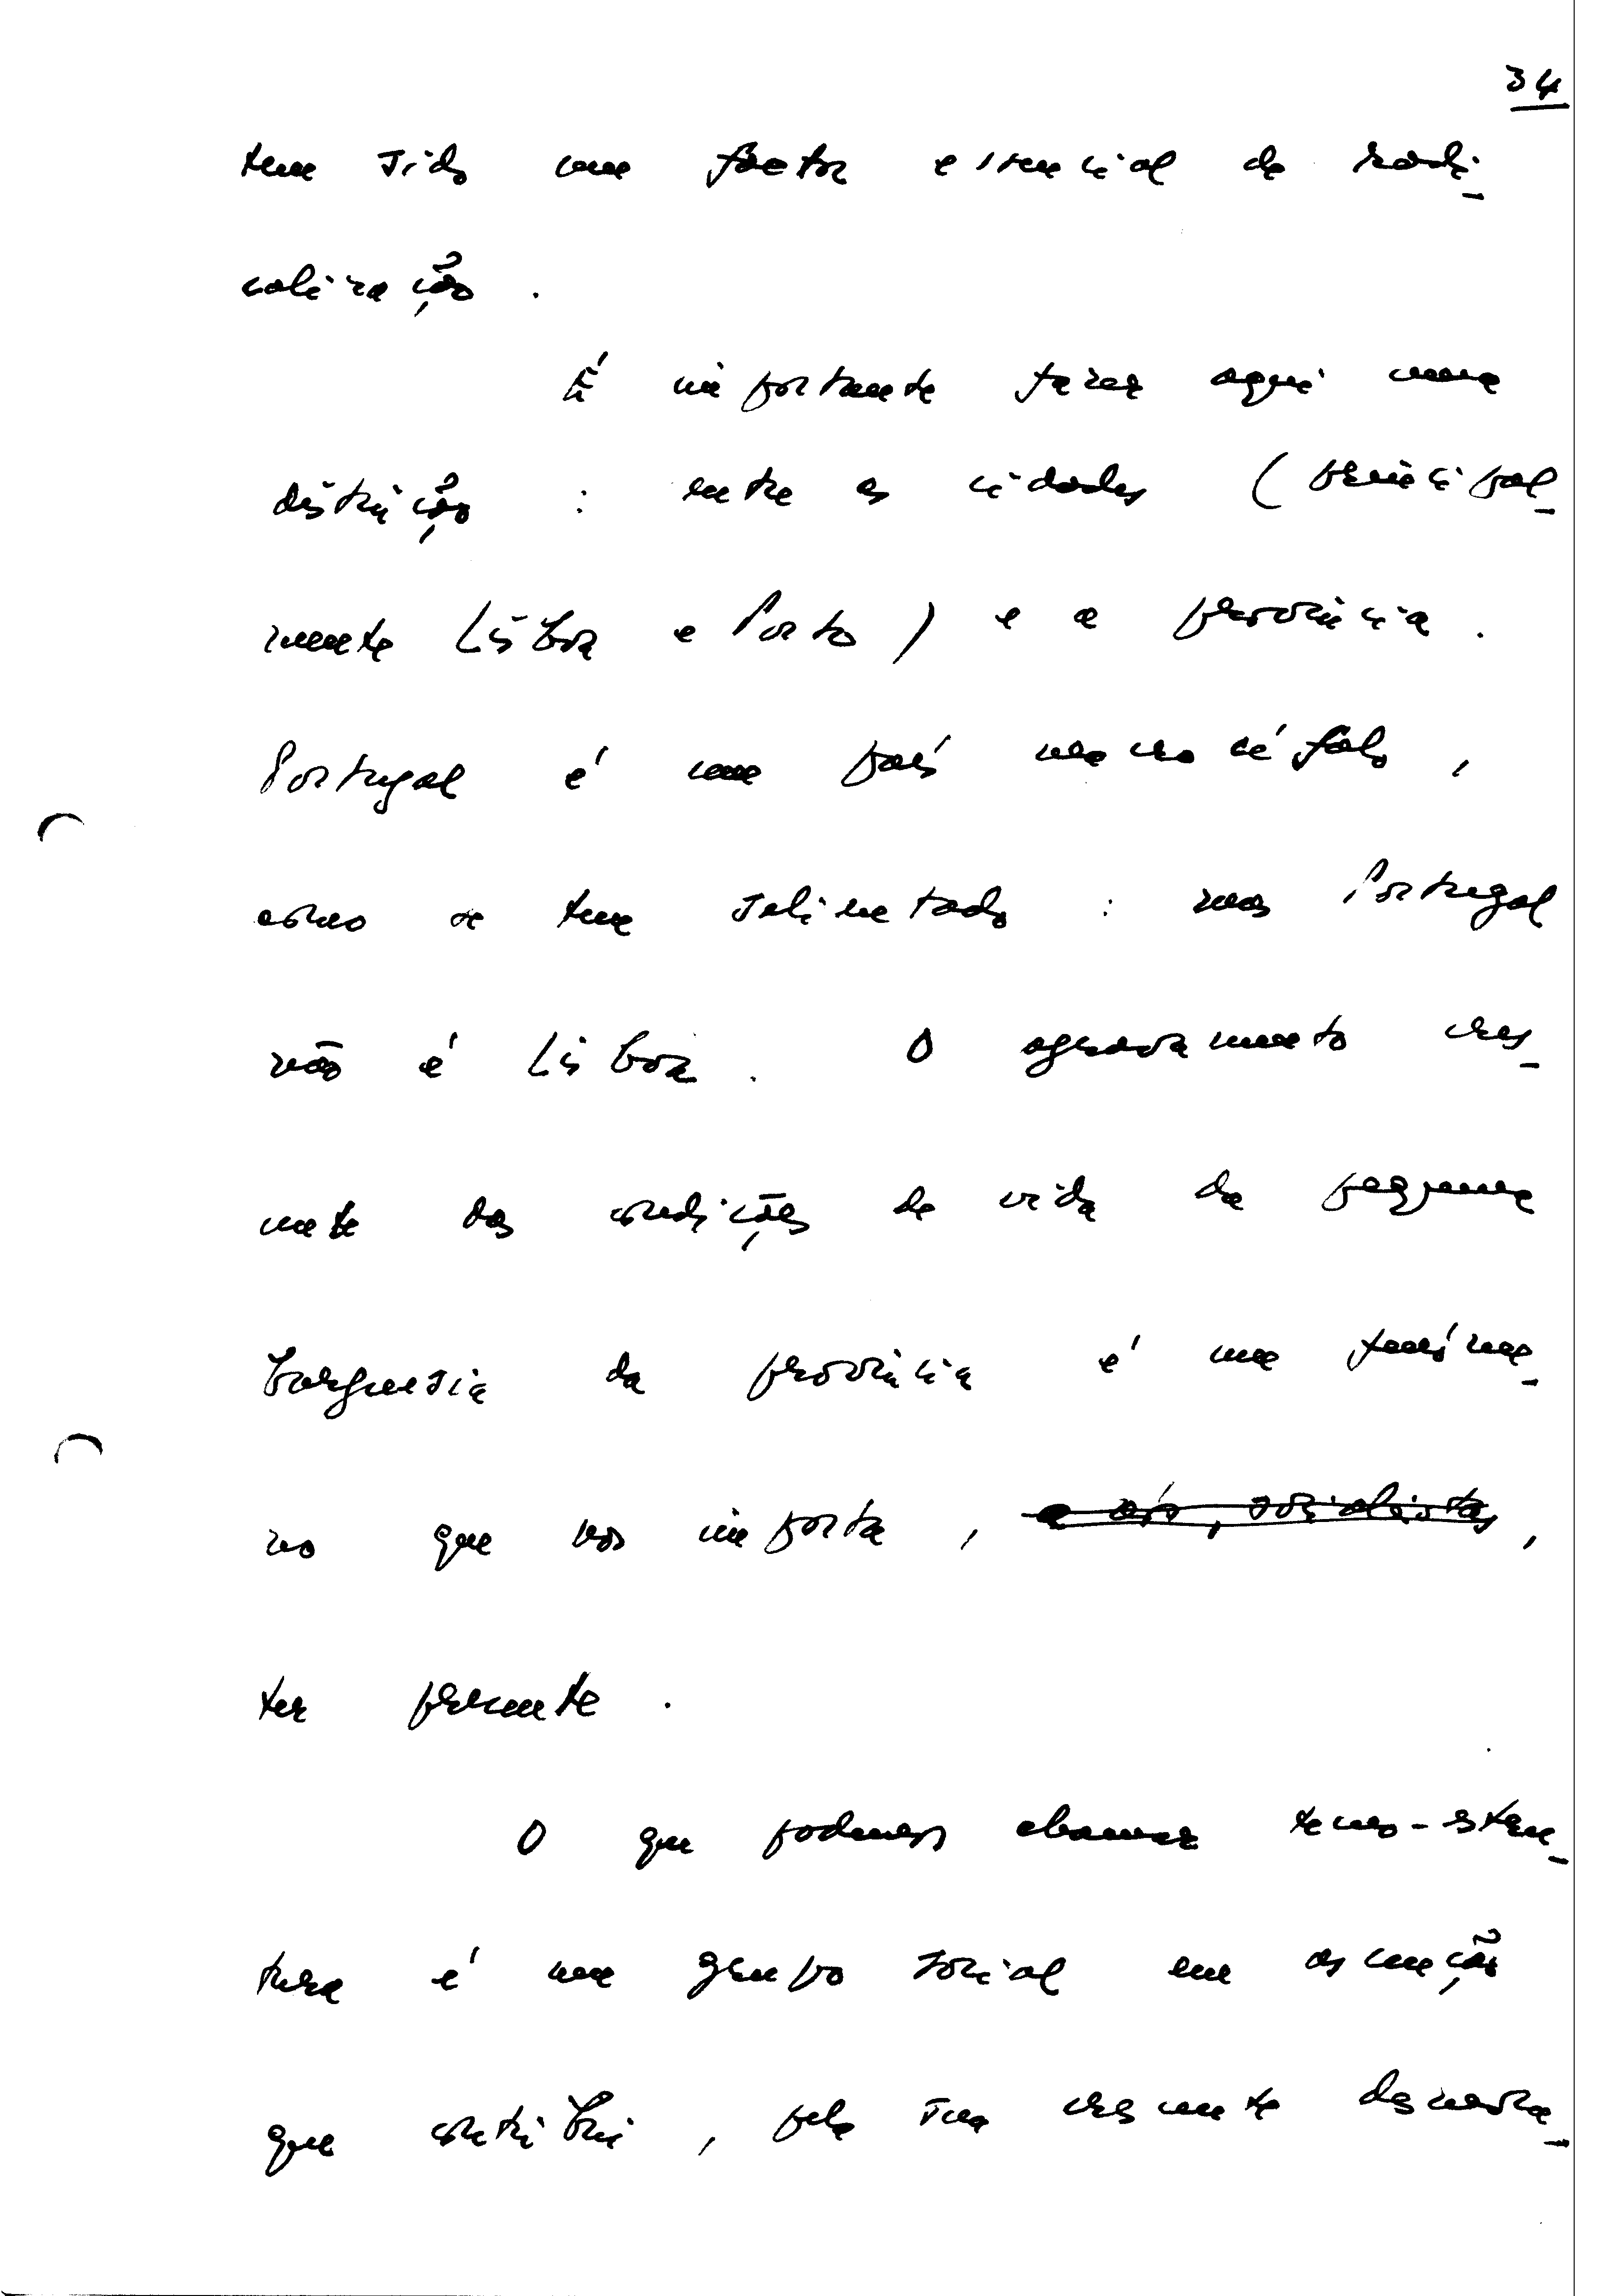 34
tem sido um factor essencial de radi-
calização.
É importante fazer aqui uma
distinção : entre as cidades (principal-
mente Lisboa e Porto) e a província.
Portugal é um país monocéfalo,
como se tem salientado : mas Portugal
não é Lisboa. O agravamento cres-
cente das condições de vida da pequena
burguesia da província é um fenóme-
no que nos importa, a nós, socialistas,
ter presente.
O que podemos chamar tecno-estru-
tura é um grupo social em ascenção
que contribui, pela sua crescente